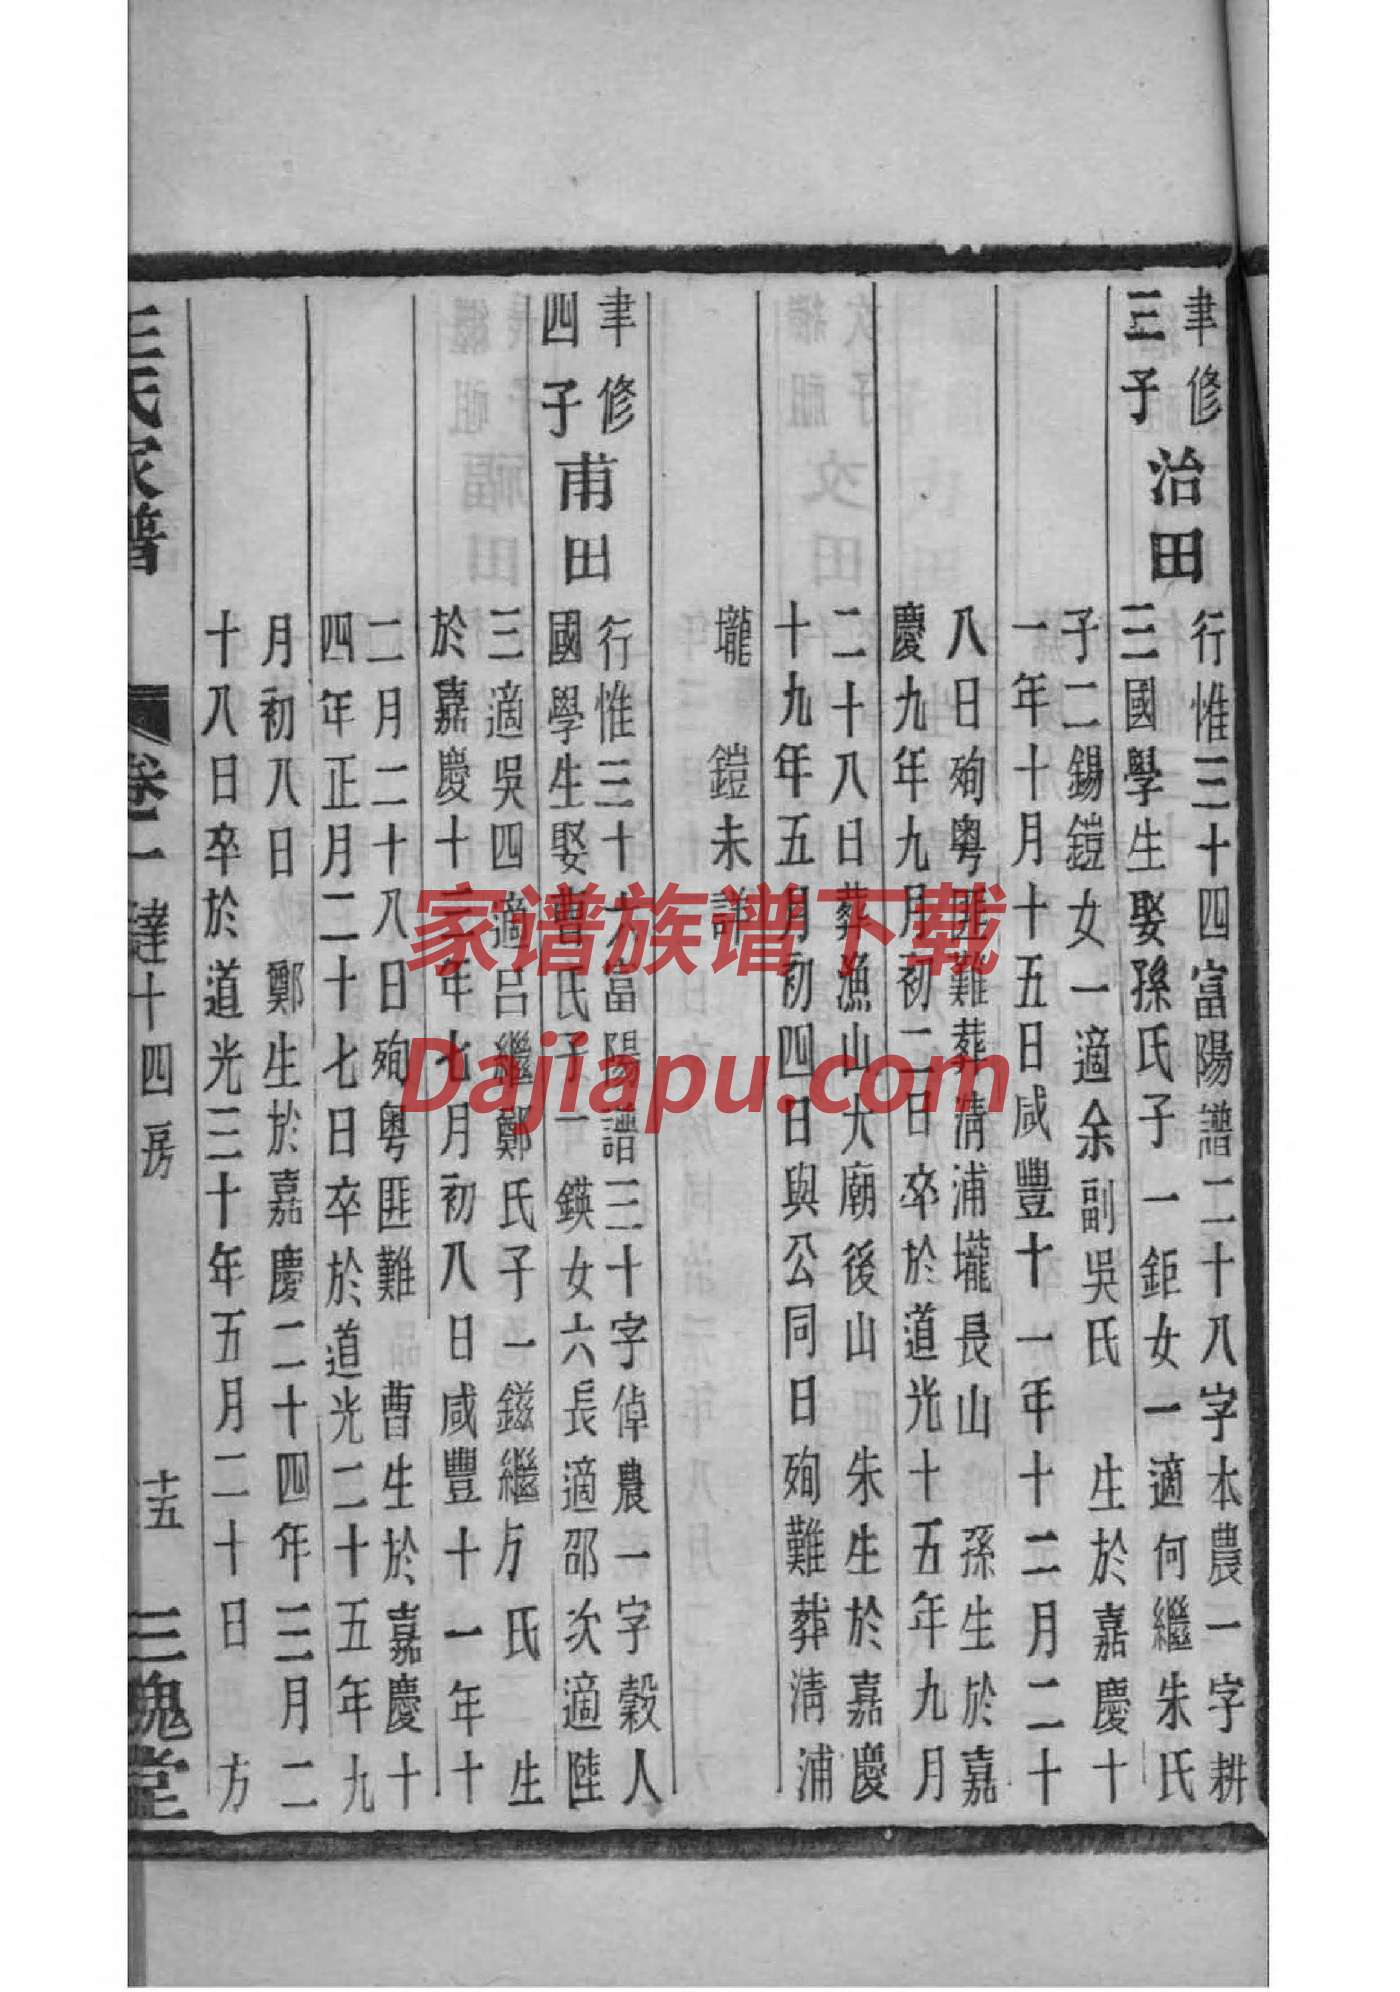 聿修
三子
治田
行惟三十四富陽譜二十八字本農一字耕
三國學生娶孫氏子一鉅女一適何繼朱氏
子二錫鎧女一適余副吳氏 生於嘉慶十
一年十月十五日咸豐十一年十二月二十
八日殉粤匪難葬淸浦壠長山 孫生於嘉
慶九年九月初二日卒於道光十五年九月
二十八日葬漁山大廟後山 朱生於嘉慶
十九年五月初四日與公同日殉難葬淸浦
壠 鎧未詳
聿修
四子
甫田
行惟三十六富陽譜三十字倬農一字穀人
國學生娶曹氏子一鍈女六長適邵次適陸
三適吳四適呂繼鄭氏子一鎡繼方氏 生
於嘉慶十二年七月初八日咸豐十一年十
二月二十八日殉粤匪難 曹生於嘉慶十
四年正月二十七日卒於道光二十五年九
月初八日 鄭生於嘉慶二十四年三月二
十八日卒於道光三十年五月二十日 方
王氏家譜
卷一 達十四房
十五
三槐堂
家谱族谱下载
Dajiapu.com